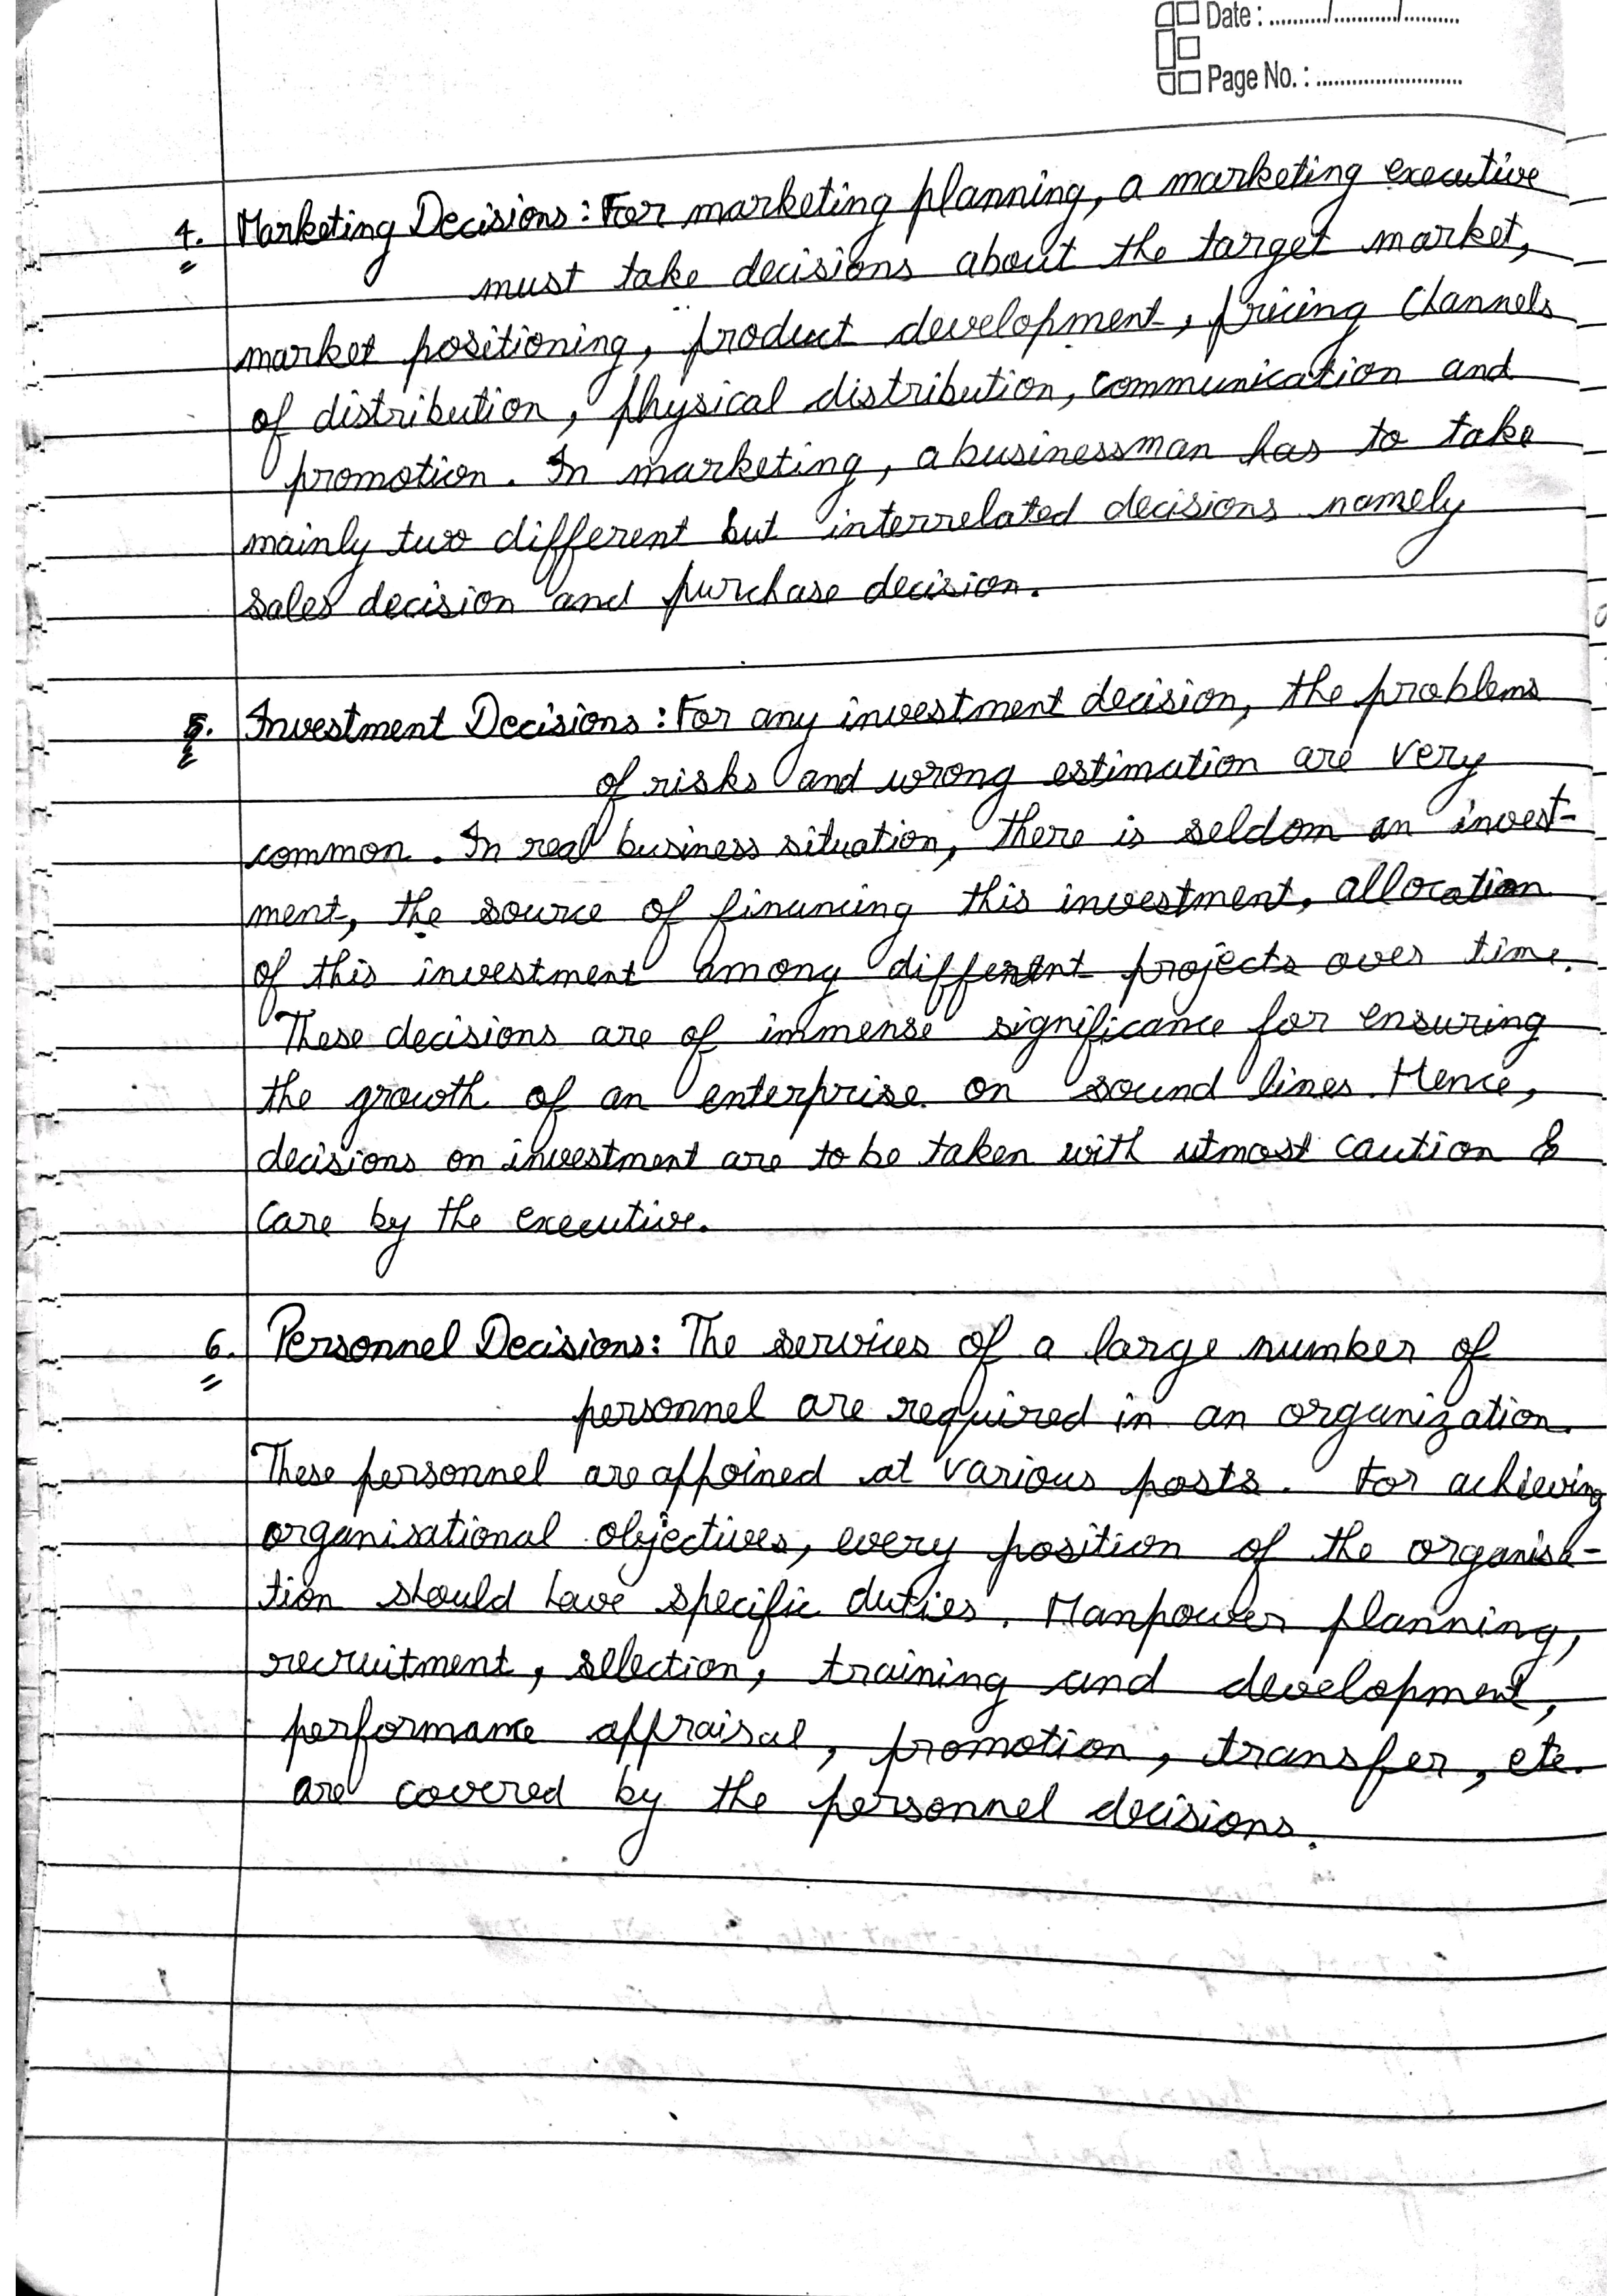 Date : ........../.........../..........
Page No. : ..........................
4. Marketing Decisions : For marketing planning, a marketing executive
must take decisions about the target market,
market positioning, product development, pricing channels
of distribution, physical distribution, communication and
promotion. In marketing, a businessman has to take
mainly two different but interrelated decisions namely
sales decision and purchase decision.
5. Investment Decisions : For any investment decision, the problems
of risks and wrong estimation are very
common. In real business situation, there is seldom an invest-
ment, the source of financing this investment, allocation
of this investment among different projects over time.
These decisions are of immense significance for ensuring
the growth of an enterprise on sound lines. Hence,
decisions on investment are to be taken with utmost caution &
care by the executive.
6. Personnel Decisions : The services of a large number of
personnel are required in an organization.
These personnel are appoined at various posts. For achieving
organisational objectives, every position of the organisa-
tion should have specific duties. Manpower planning,
recruitment, selection, training and development,
performance appraisal, promotion, transfer, etc.
are covered by the personnel decisions.